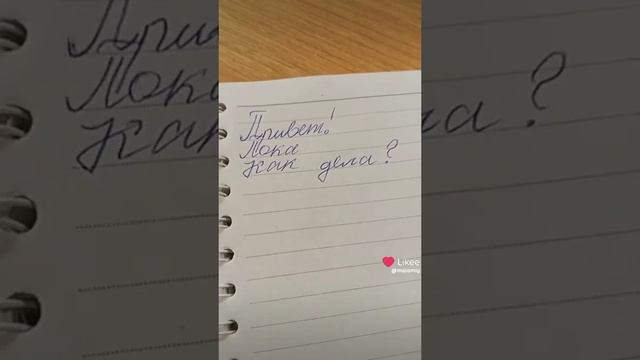 Привет!
Пока
Как дела?
Likee